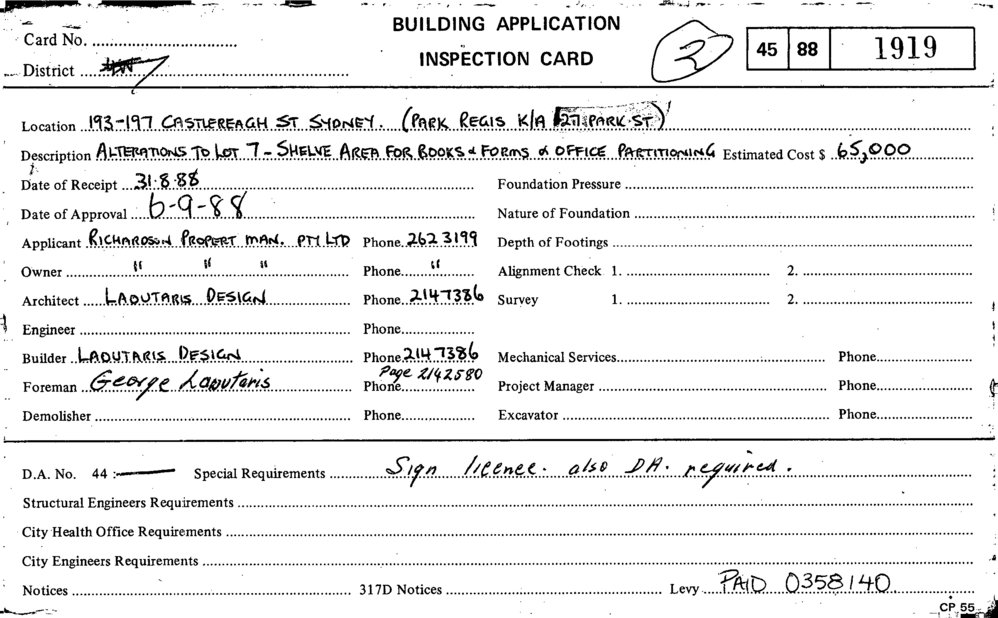 BUILDING APPLICATION
INSPECTION CARD
Card No.
District
2
45 88 1919
Location 193-197 CASTLEREAGH ST SYDNEY. (PARK REGIS K/A 27 PARK ST)
Description ALTERATIONS TO LOT 7 - SHELVE AREA FOR BOOKS & FORMS & OFFICE PARTITIONING Estimated Cost $ 65,000
Date of Receipt 31.8.88 Foundation Pressure
Date of Approval 6-9-88 Nature of Foundation
Applicant RICHARDSON PROPERT MAN. PTY LTD Phone 262 3199 Depth of Footings
Owner " " " Phone " Alignment Check 1. 2.
Architect LAOUTARIS DESIGN Phone 2147386 Survey 1. 2.
Engineer Phone
Builder LAOUTARIS DESIGN Phone 214 7386 Mechanical Services Phone
Foreman George Laoutaris Phone Page 2142580 Project Manager Phone
Demolisher Phone Excavator Phone
D.A. No. 44 :— Special Requirements Sign licence. also DA. required.
Structural Engineers Requirements
City Health Office Requirements
City Engineers Requirements
Notices 317D Notices Levy PAID 0358140
CP 55